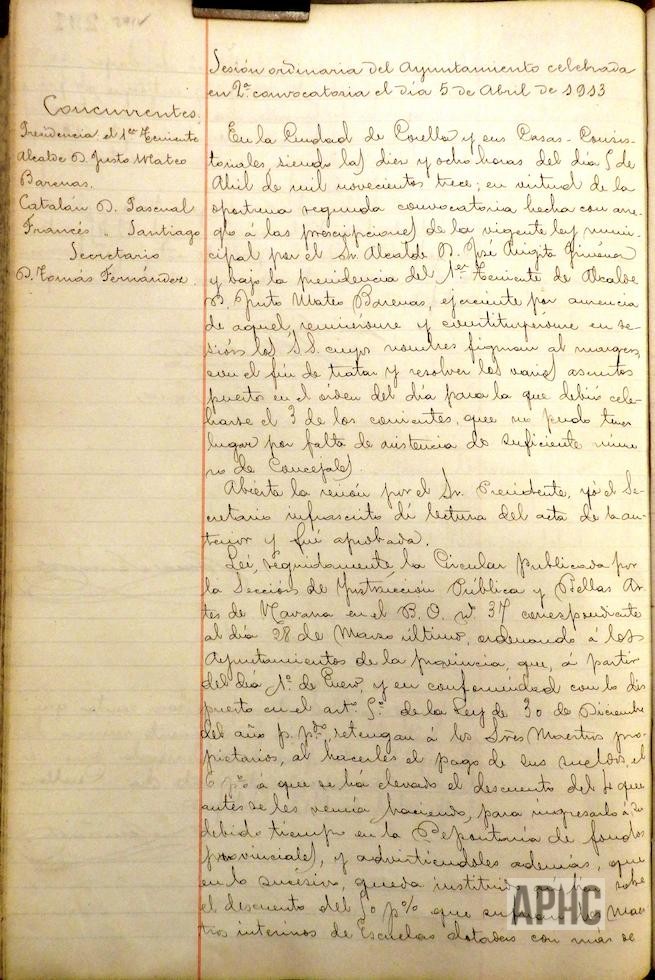 Sesión ordinaria del Ayuntamiento celebrada
en 2ª convocatoria el día 5 de Abril de 1913
Concurrentes.
Presidencia el 1er Teniente
Alcalde D. Justo Mateo
Barenas.
Catalán D. Pascual
Francés " Santiago
Secretario
D. Tomás Fernández.
En la Ciudad de Corella y sus Casas-Consis-
toriales, siendo las diez y ocho horas del día 5 de
Abril de mil novecientos trece; en virtud de la
oportuna segunda convocatoria hecha con arre-
glo á las prescripciones de la vigente ley muni-
cipal por el Sr. Alcalde D. José
y bajo la presidencia del 1er Teniente de Alcalde
D. Justo Mateo Barenas, ejerciente por ausencia
de aquel, reuniéronse y constituyéronse en se-
sión los S.S. cuyos nombres figuran al margen,
con el fin de tratar y resolver los varios asuntos
puestos en el orden del día para la que debió cele-
brarse el 3 de los corrientes, que no pudo tener
lugar por falta de asistencia de suficiente núme-
ro de Concejales.
Abierta la sesión por el Sr. Presidente, yó el Se-
cretario infrascrito dí lectura del acta de la an-
terior y fué aprobada.
Leí, seguidamente, la Circular publicada por
la Sección de Ynstrucción Pública y Bellas Ar-
tes de Navarra en el B.O. nº 37 correspondiente
al día 28 de Marzo último, ordenando á los
Ayuntamientos de la provincia, que, á partir
del día 1º de Enero, y en conformidad con lo dis
puesto en el artº 5º de la Ley de 30 de Diciembre
del año p. pdo, retengan á los Sres Maestros pro-
pietarios, al hacerles el pago de sus sueldos, el
6 p% á que se há elevado el descuento del 4 que
antes se les venía haciendo, para ingresarlo á su
debido tiempo en la Depositaría de fondos
provinciales, y advirtiéndoles además, que
en lo sucesivo, queda sobre
el descuento del 50 p% que sufrían los Maes
tros interinos de Escuelas dotadas con más de
APHC